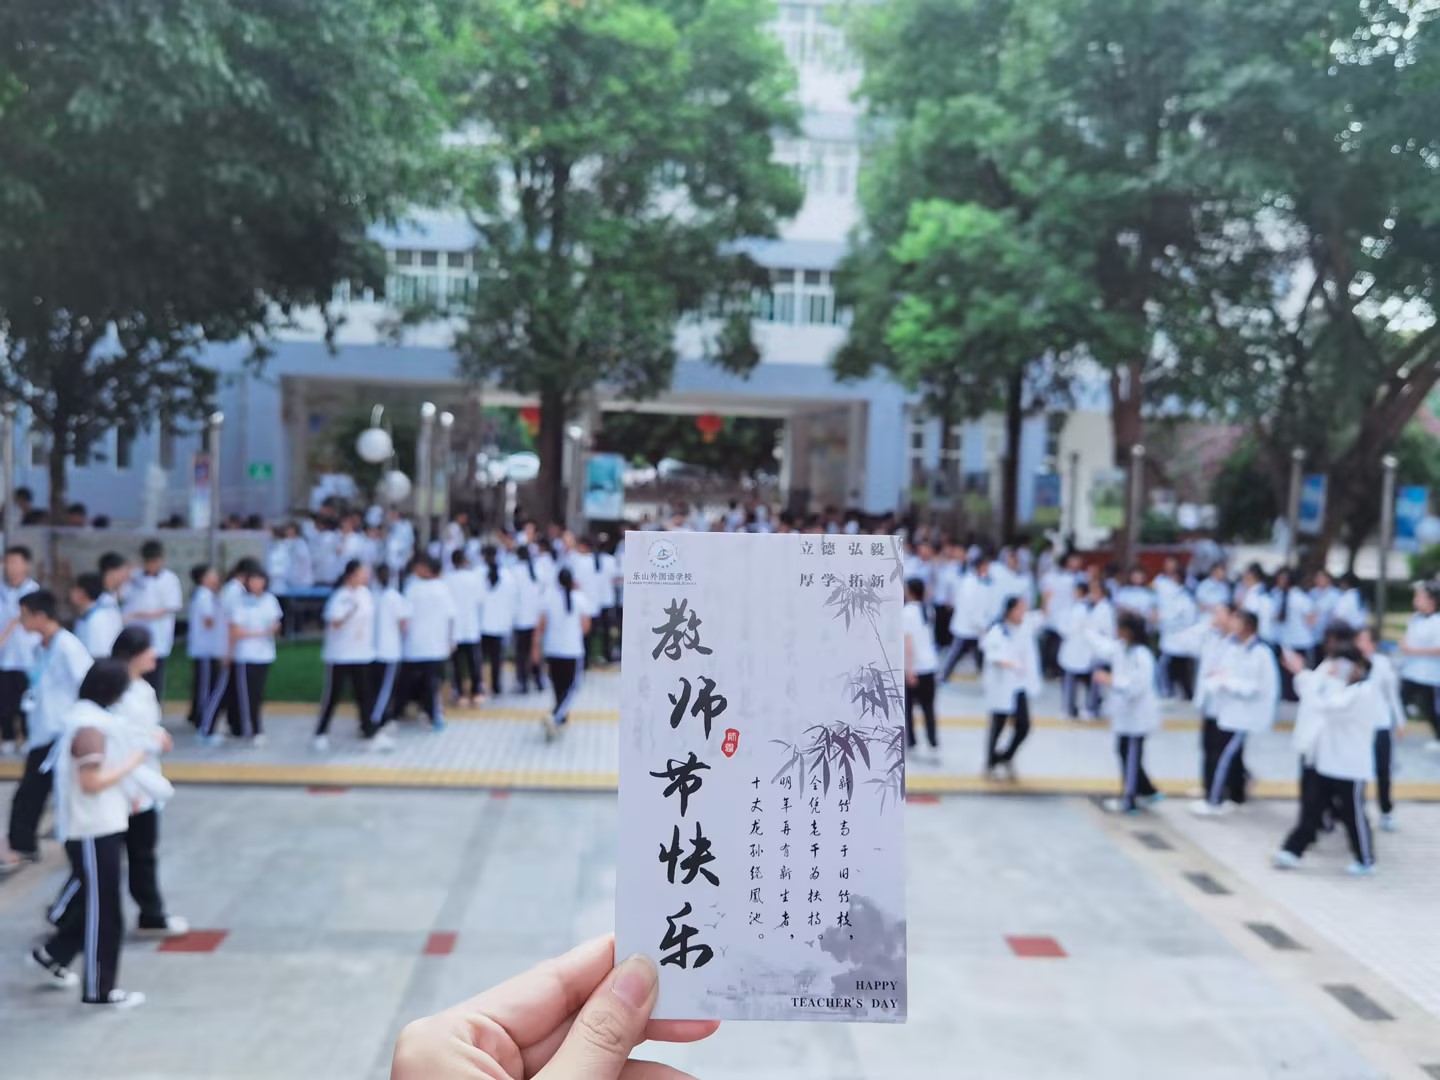 乐山外国语学校
立德 弘毅
厚学 拓新
教师节快乐
师恩
新竹高于旧竹枝，
全凭老干为扶持。
明年再有新生者，
十丈龙孙绕凤池。
HAPPY
TEACHER'S DAY